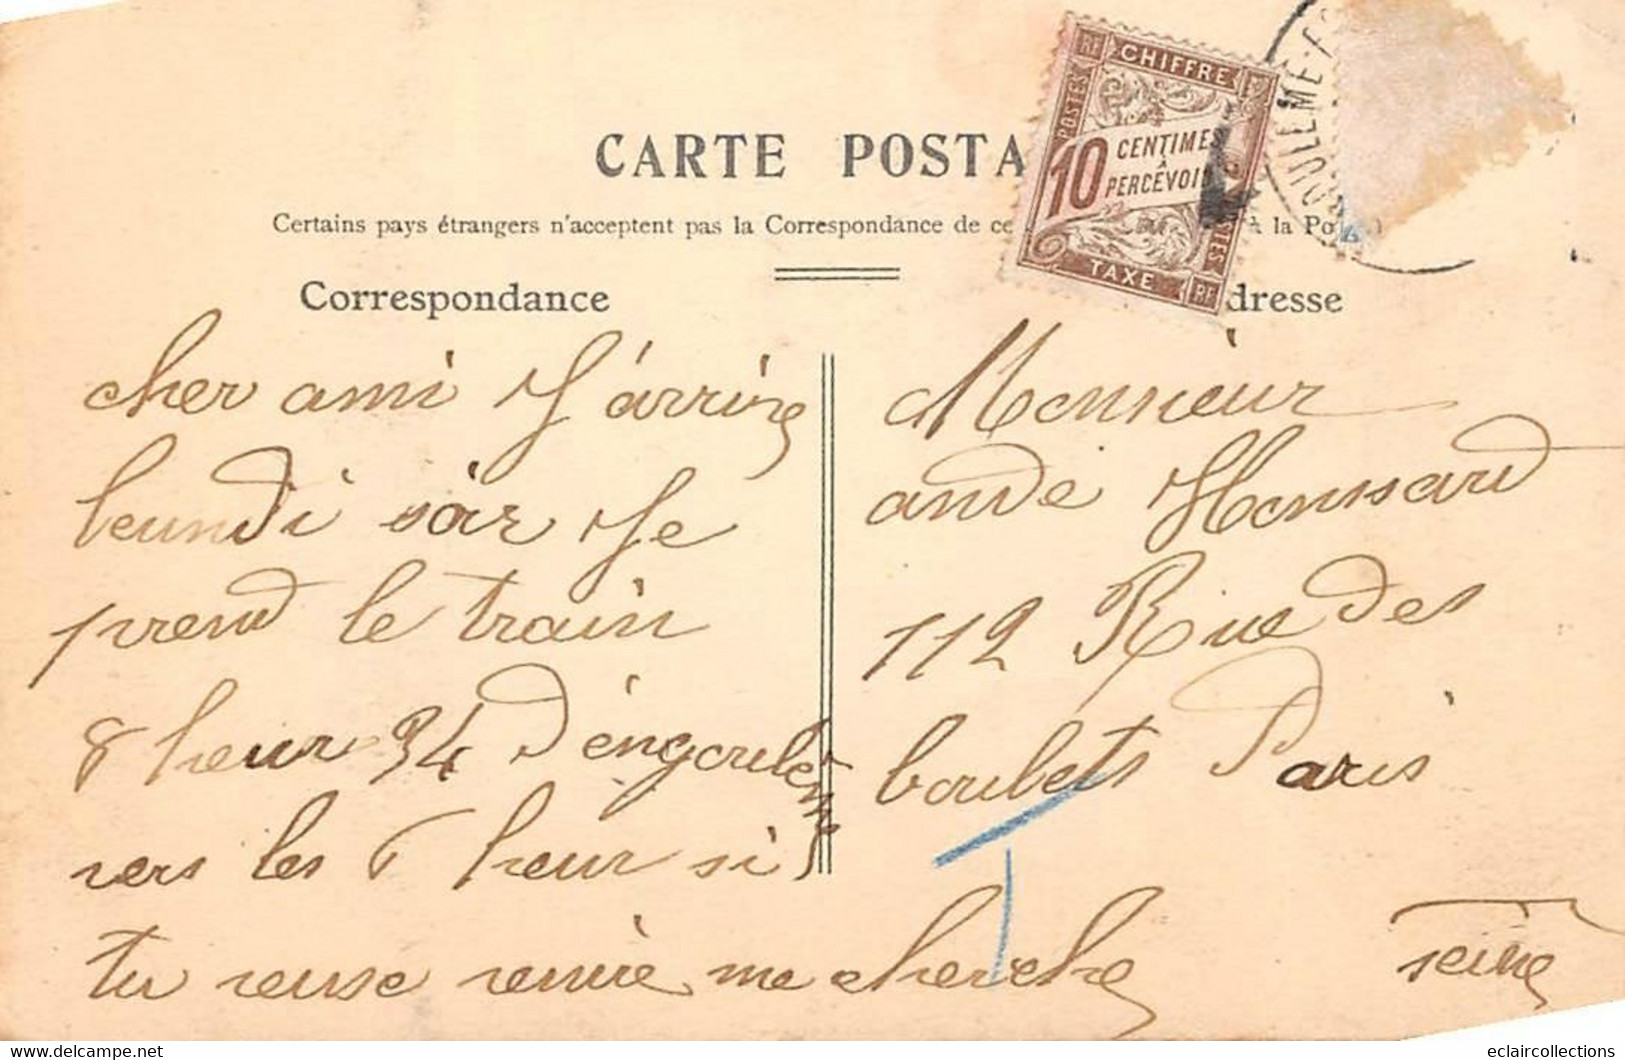 CARTE POSTA
Certains pays étrangers n'acceptent pas la Correspondance de ce à la Po
RF CHIFFRE
POSTES
10 CENTIMES
À
PERCEVOI
TAXE RF
OULME
Correspondance
cher ami J'árrive
leundi soir Je
prend le train
8 heur 34 D'éngoulem
vers les 6 heur si
tu veuse venire me cherche
dresse
Monsieur
andé Honssard
112 Rue des
boulets Paris
seine
T
www.delcampe.net
eclaircollections